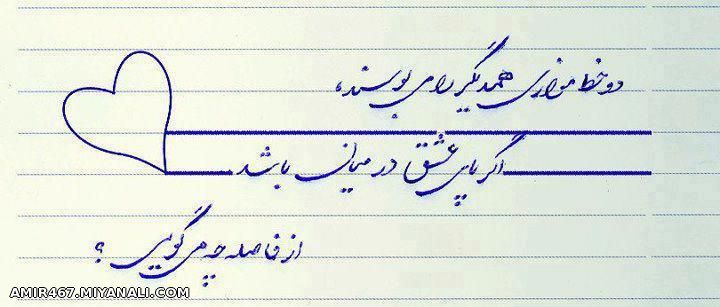 دو خط موازی همدیگر را می بوسند،
اگر پای عشق در میان باشد
از فاصله چه می گویی ؟
AMIR467.MIYANALI.COM